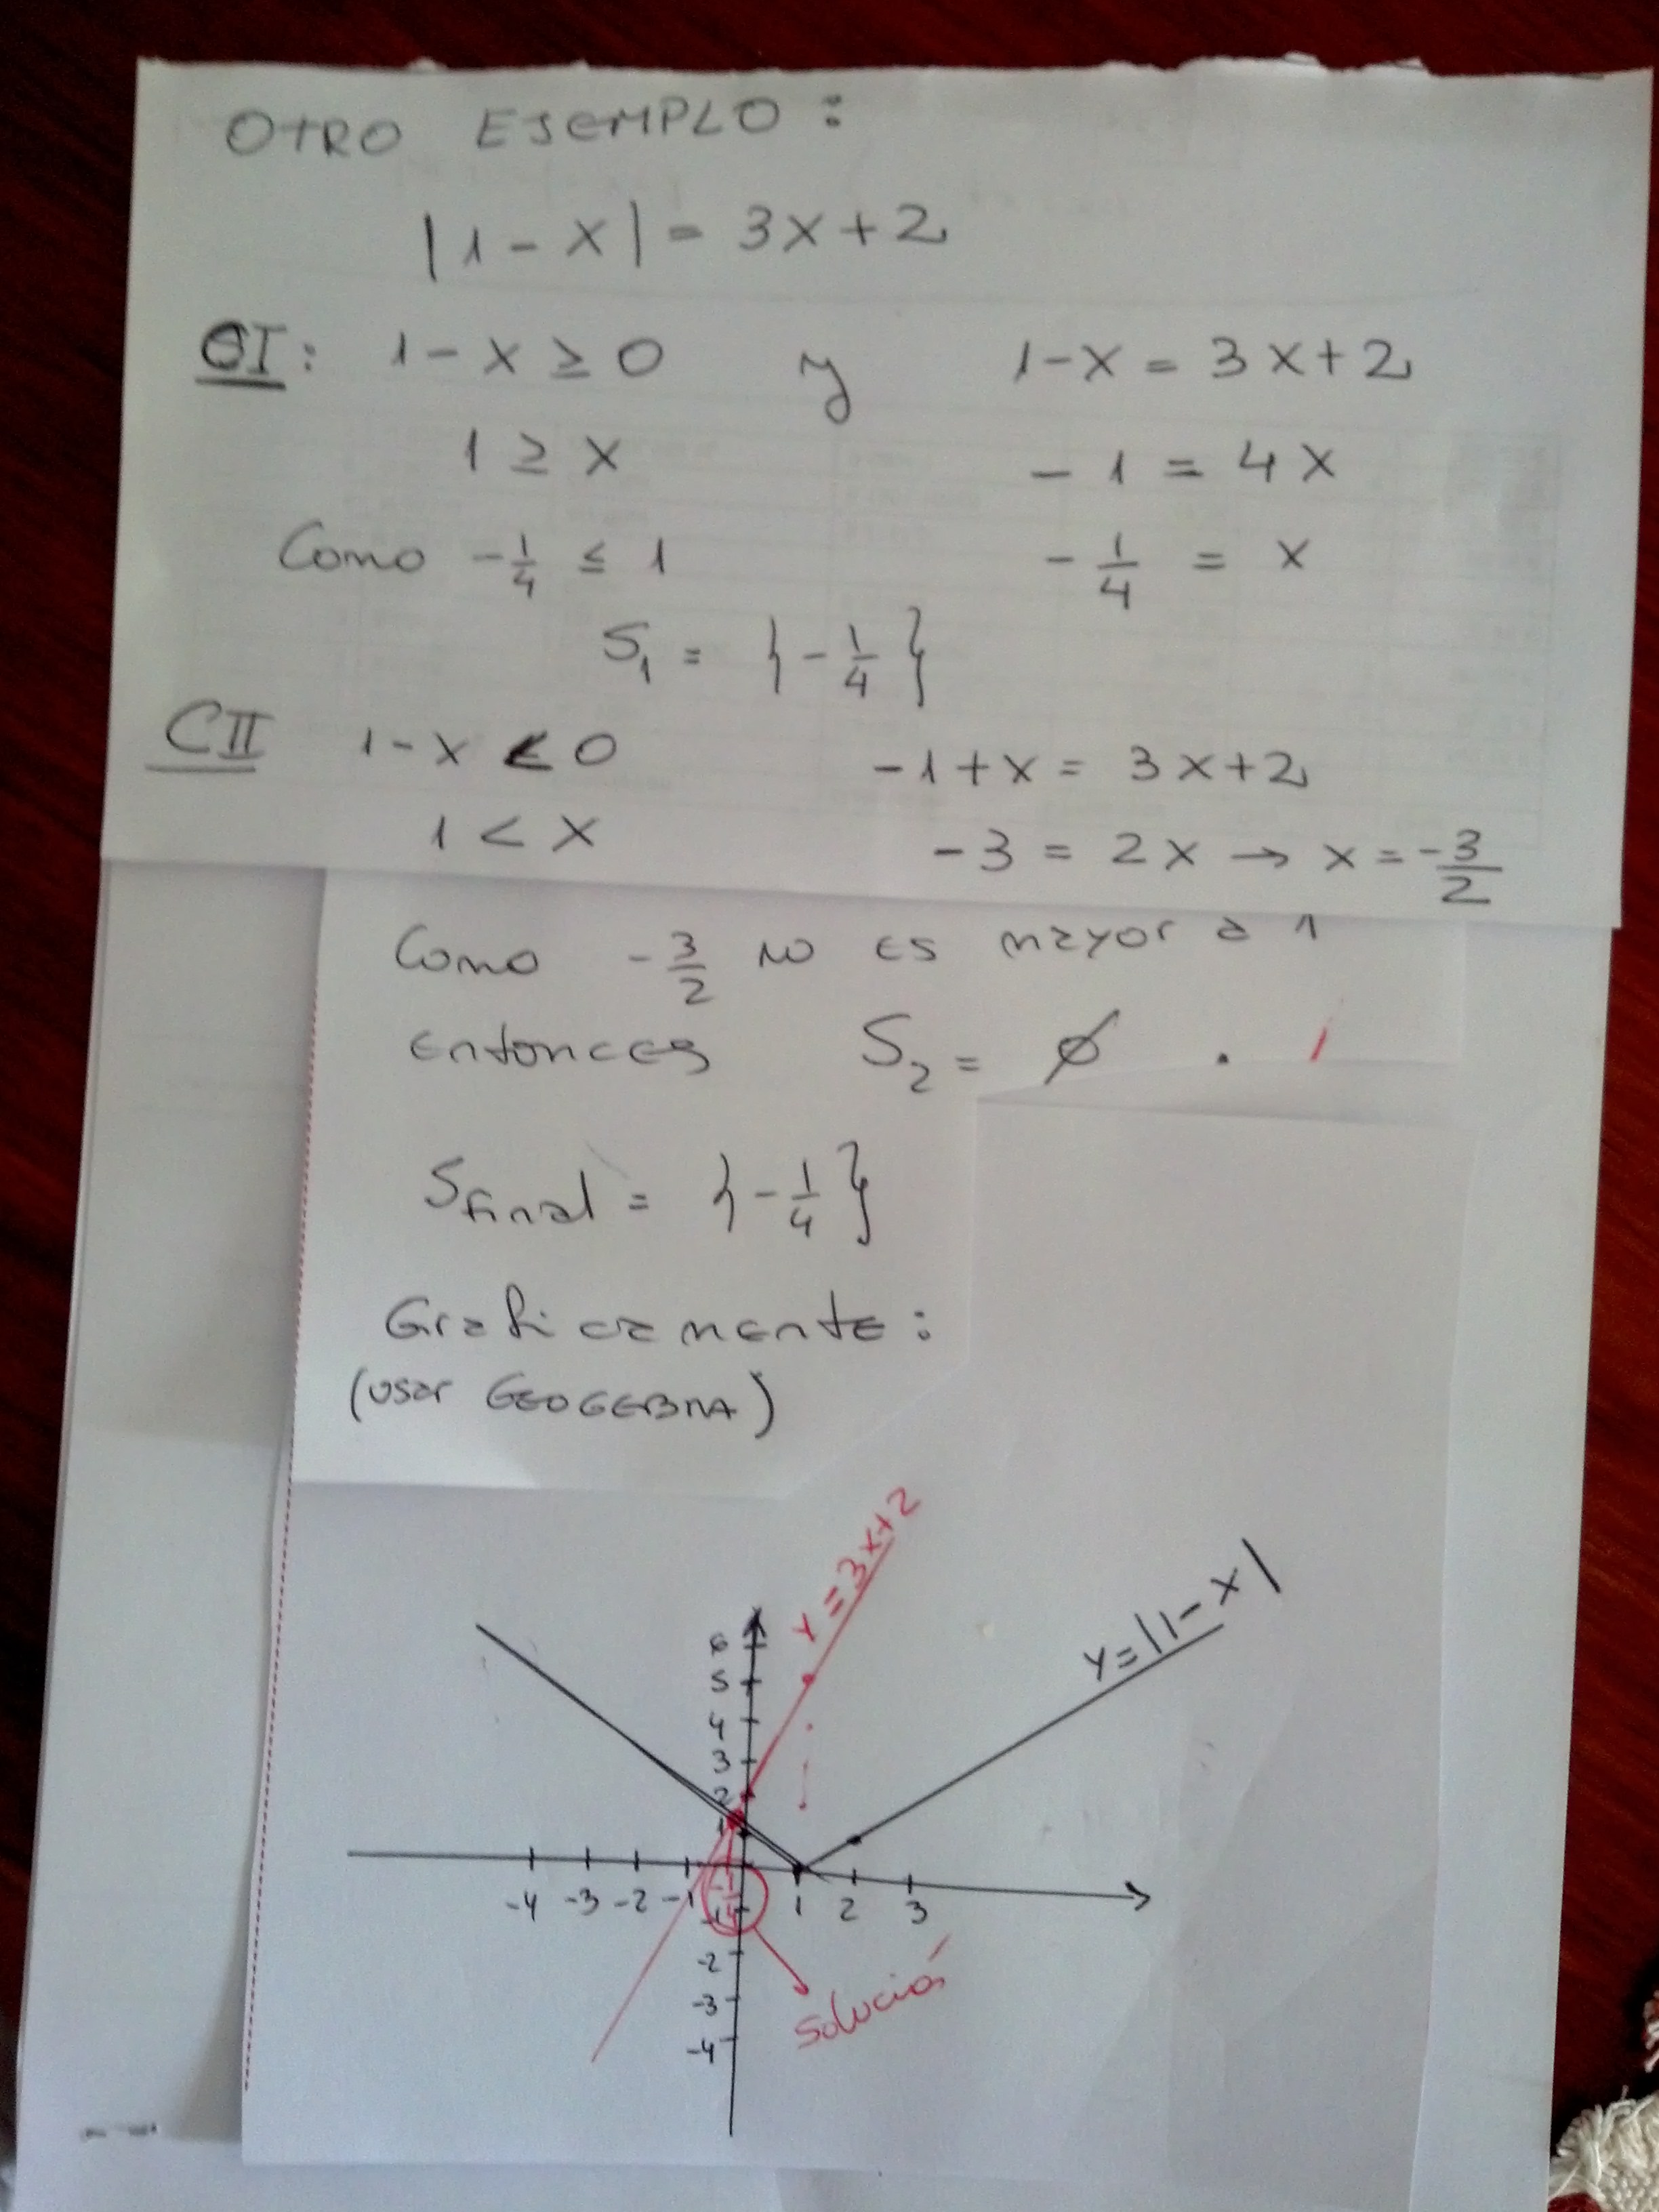 OTRO EJEMPLO:
|1-x| = 3x+2
CI: 1-x ≥ 0 y 1-x = 3x+2
1 ≥ x -1 = 4x
Como -1/4 ≤ 1 -1/4 = x
S₁ = {-1/4}
CII 1-x < 0 -1+x = 3x+2
1 < x -3 = 2x → x = -3/2
Como -3/2 no es mayor a 1
entonces S₂ = ∅ .
Sfinal = {-1/4}
Graficamente:
(usar GEOGEBRA)
y=3x+2
y=|1-x|
6
5
4
3
2
1
-4 -3 -2 -1 -1/4 1 2 3
-1
-2
-3
-4
solución